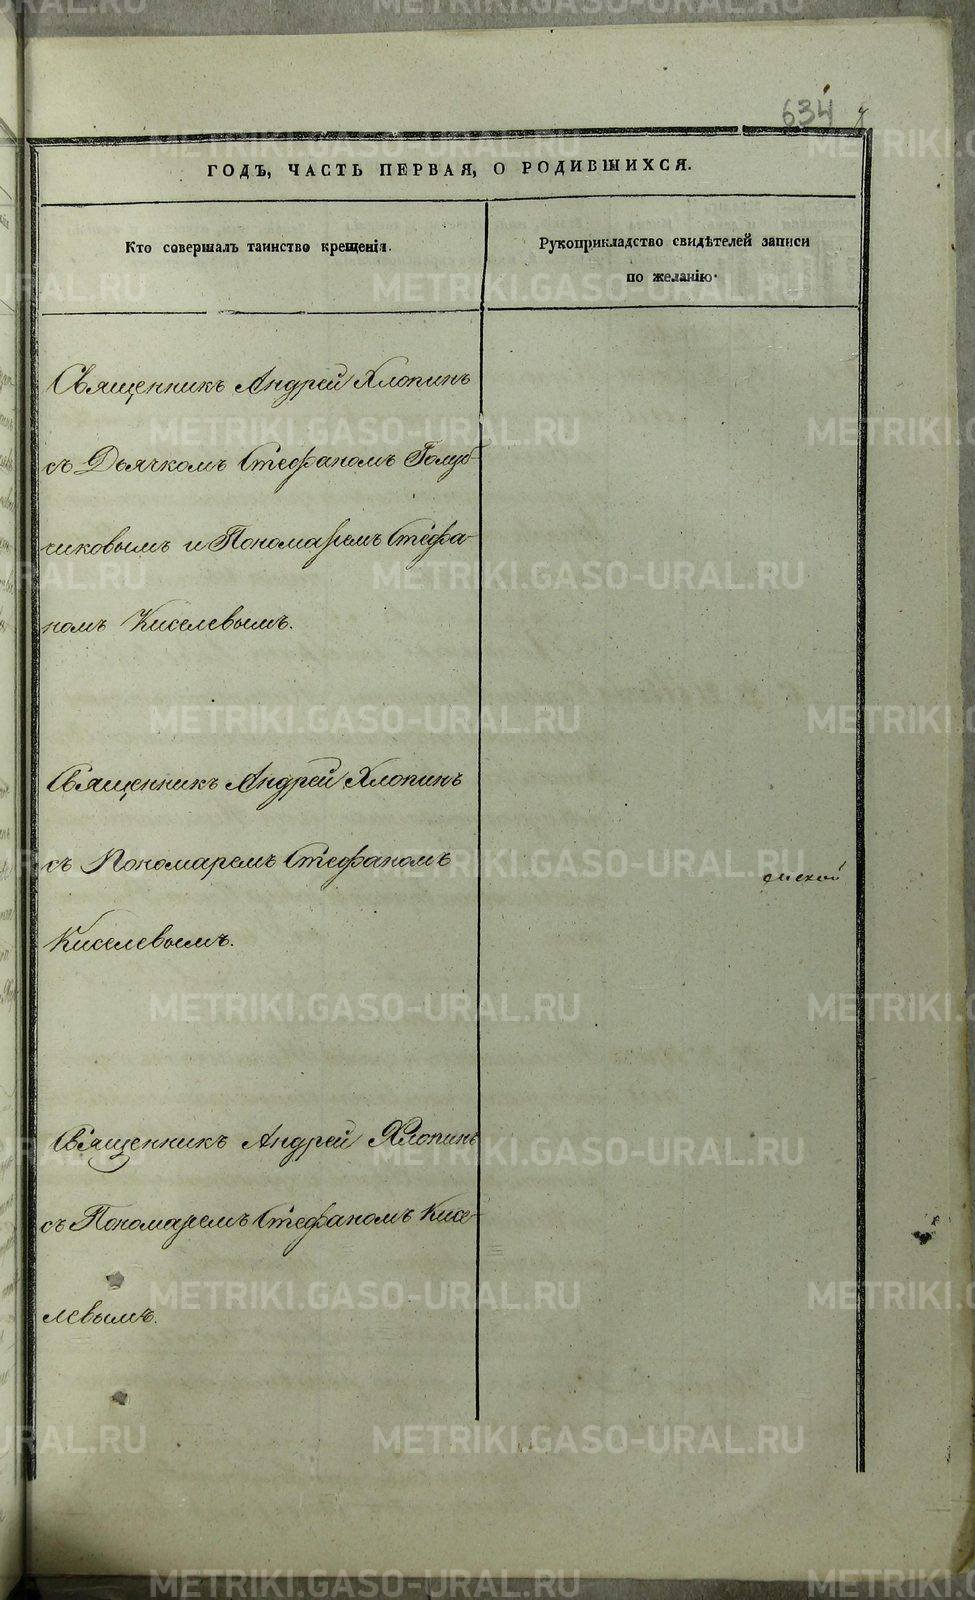 634
ГОДЪ, ЧАСТЬ ПЕРВАЯ, О РОДИВШИХСЯ.
Кто совершалъ таинство крещенія.
Рукоприкладство свидѣтелей записи
по желанію.
Священникъ Андрей Хлопинъ
съ Дьячкомъ Стефаномъ Голуб-
чиковымъ и Пономаремъ Стефа-
номъ Киселевымъ.
Священникъ Андрей Хлопинъ
съ Пономаремъ Стефаномъ
Киселевымъ.
Священникъ Андрей Хлопинъ
съ Пономаремъ Стефаномъ Кисе-
левымъ.
METRIKI.GASO-URAL.RU